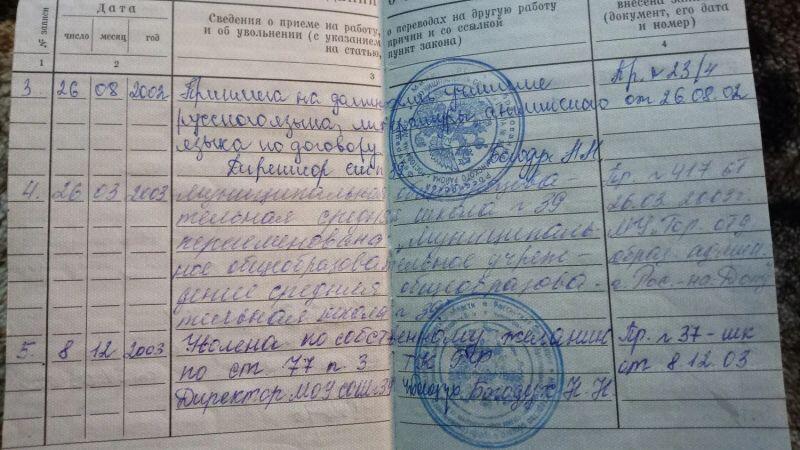 № записи
Дата
число месяц год
Сведения о приеме на работу, о переводах на другую работу
и об увольнении (с указанием причин и со ссылкой
на статью, пункт закона)
внесена
(документ, его дата
и номер)
1 2 3 4
3. 26 08 2002 Принята на должность учителя Пр. № 23/4
русского языка, литературы, английского от 26.08.02
языка по договору.
Директор Богодух Н.Н.
4. 26 03 2003 Муниципальная Пр. № 417 от
тельная средняя школа № 39 26.03.2003г
переименована муниципаль- МУ "Гор. отд.
ное общеобразовательное учреж- образ. админ
дение средняя общеобразова- г. Рос.-на-Дону
тельная школа № 39.
5. 8 12 2003 Уволена по собственному желанию Пр. № 37-шк
по ст 77 п 3 ТК РФ от 8.12.03
Директор МОУ СОШ-39 Богодух Н.Н.